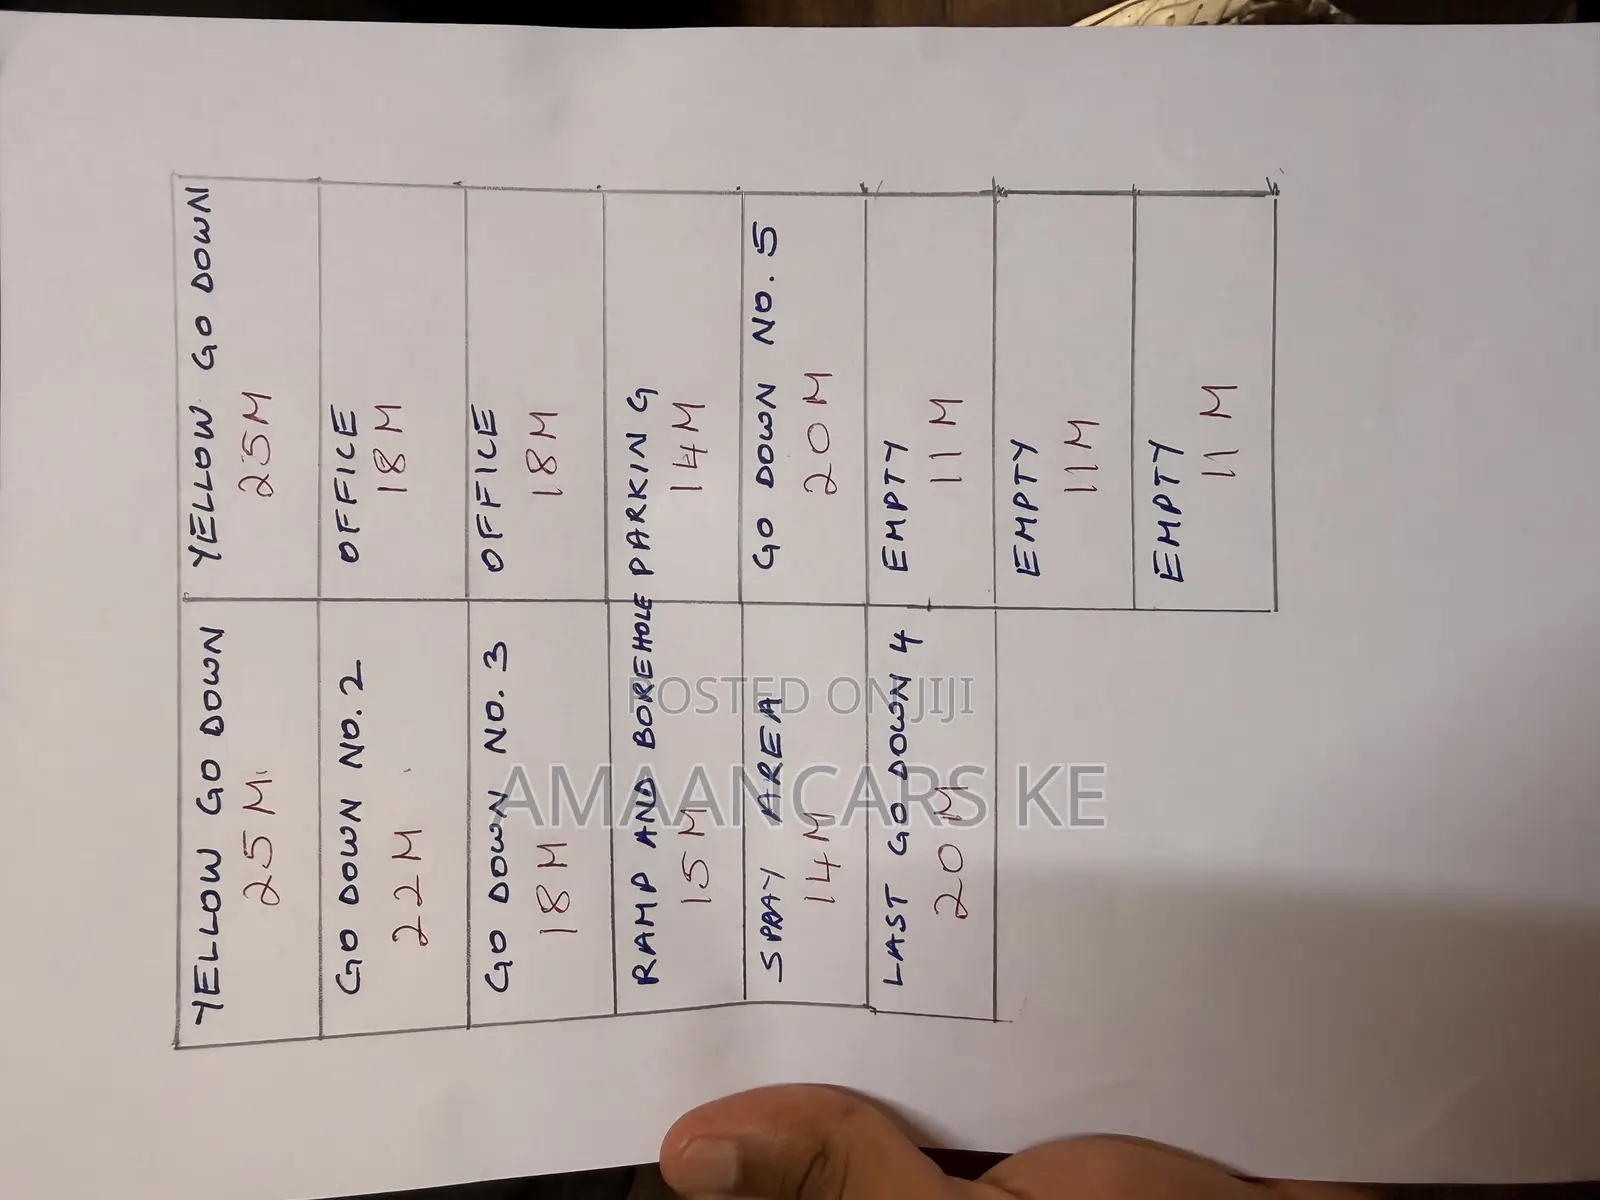 YELLOW GO DOWN
25M.
YELLOW GO DOWN
25M
GO DOWN NO. 2
22M
OFFICE
18M
GO DOWN NO. 3
18M
OFFICE
18M
RAMP AND BOREHOLE
15M
PARKING
14M
SPRAY AREA
14M
GO DOWN NO. 5
20M
LAST GO DOWN 4
20M
EMPTY
11M
EMPTY
11M
EMPTY
11M
POSTED ON JIJI
AMAANCARS KE